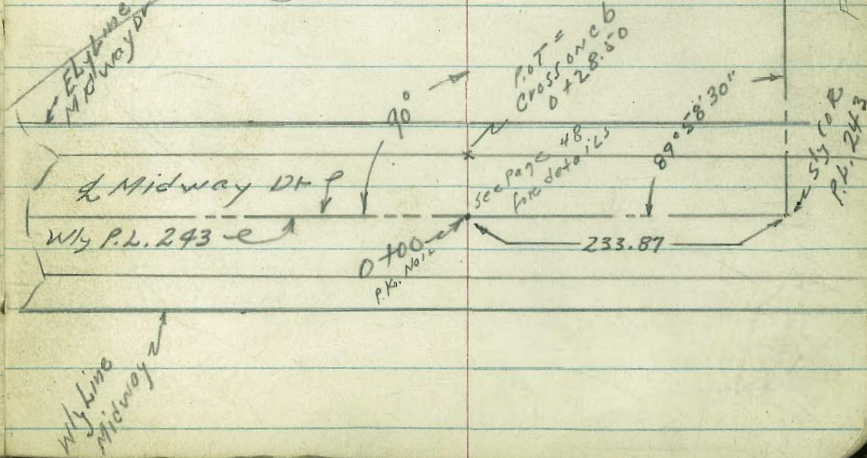 Ely Line
Midway Dr
90°
P.O.T =
Cross on cb
0+28.50
89°58'30"
Sly Cor
P.L. 243
see page 48
for details
℄ Midway Dr
Wly P.L. 243
0+00
P.K. Nail
233.87
Wly Line
Midway